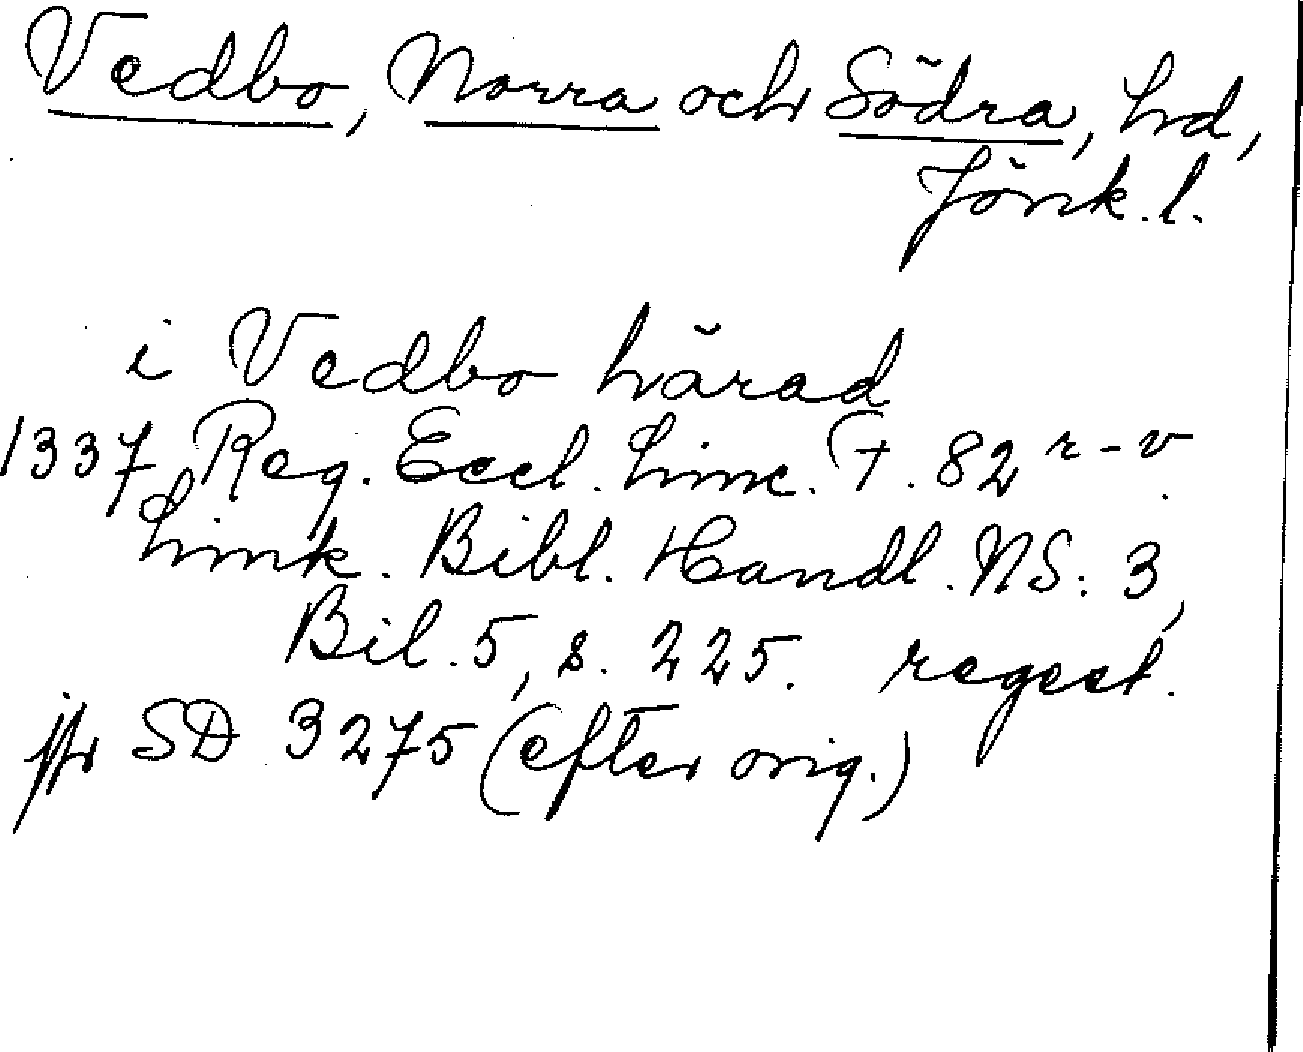 Vedbo, Norra och Södra, hd,
Jönk. l.
i Vedbo härad
1337 Reg. Eccl. Linc. F. 82 r-v.
Link. Bibl. Handl. NS: 3,
Bil. 5, s. 225. regest.
jfr SD 3275 (efter orig.)